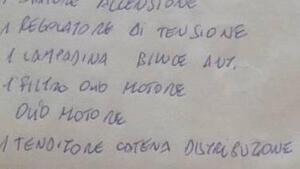 1 STATORE ACCENSIONE
1 REGOLATORE DI TENSIONE
1 LAMPADINA BILUCE ANT.
1 FILTRO OLIO MOTORE
OLIO MOTORE
1 TENDITORE CATENA DISTRIBUZIONE